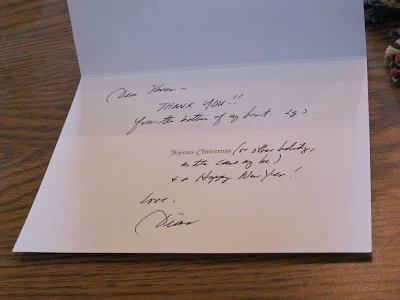 Dear Karen –
THANK YOU!!
from the bottom of my heart.
Joyous Christmas (or other holiday,
as the case may be)
& a Happy New Year!
Love,